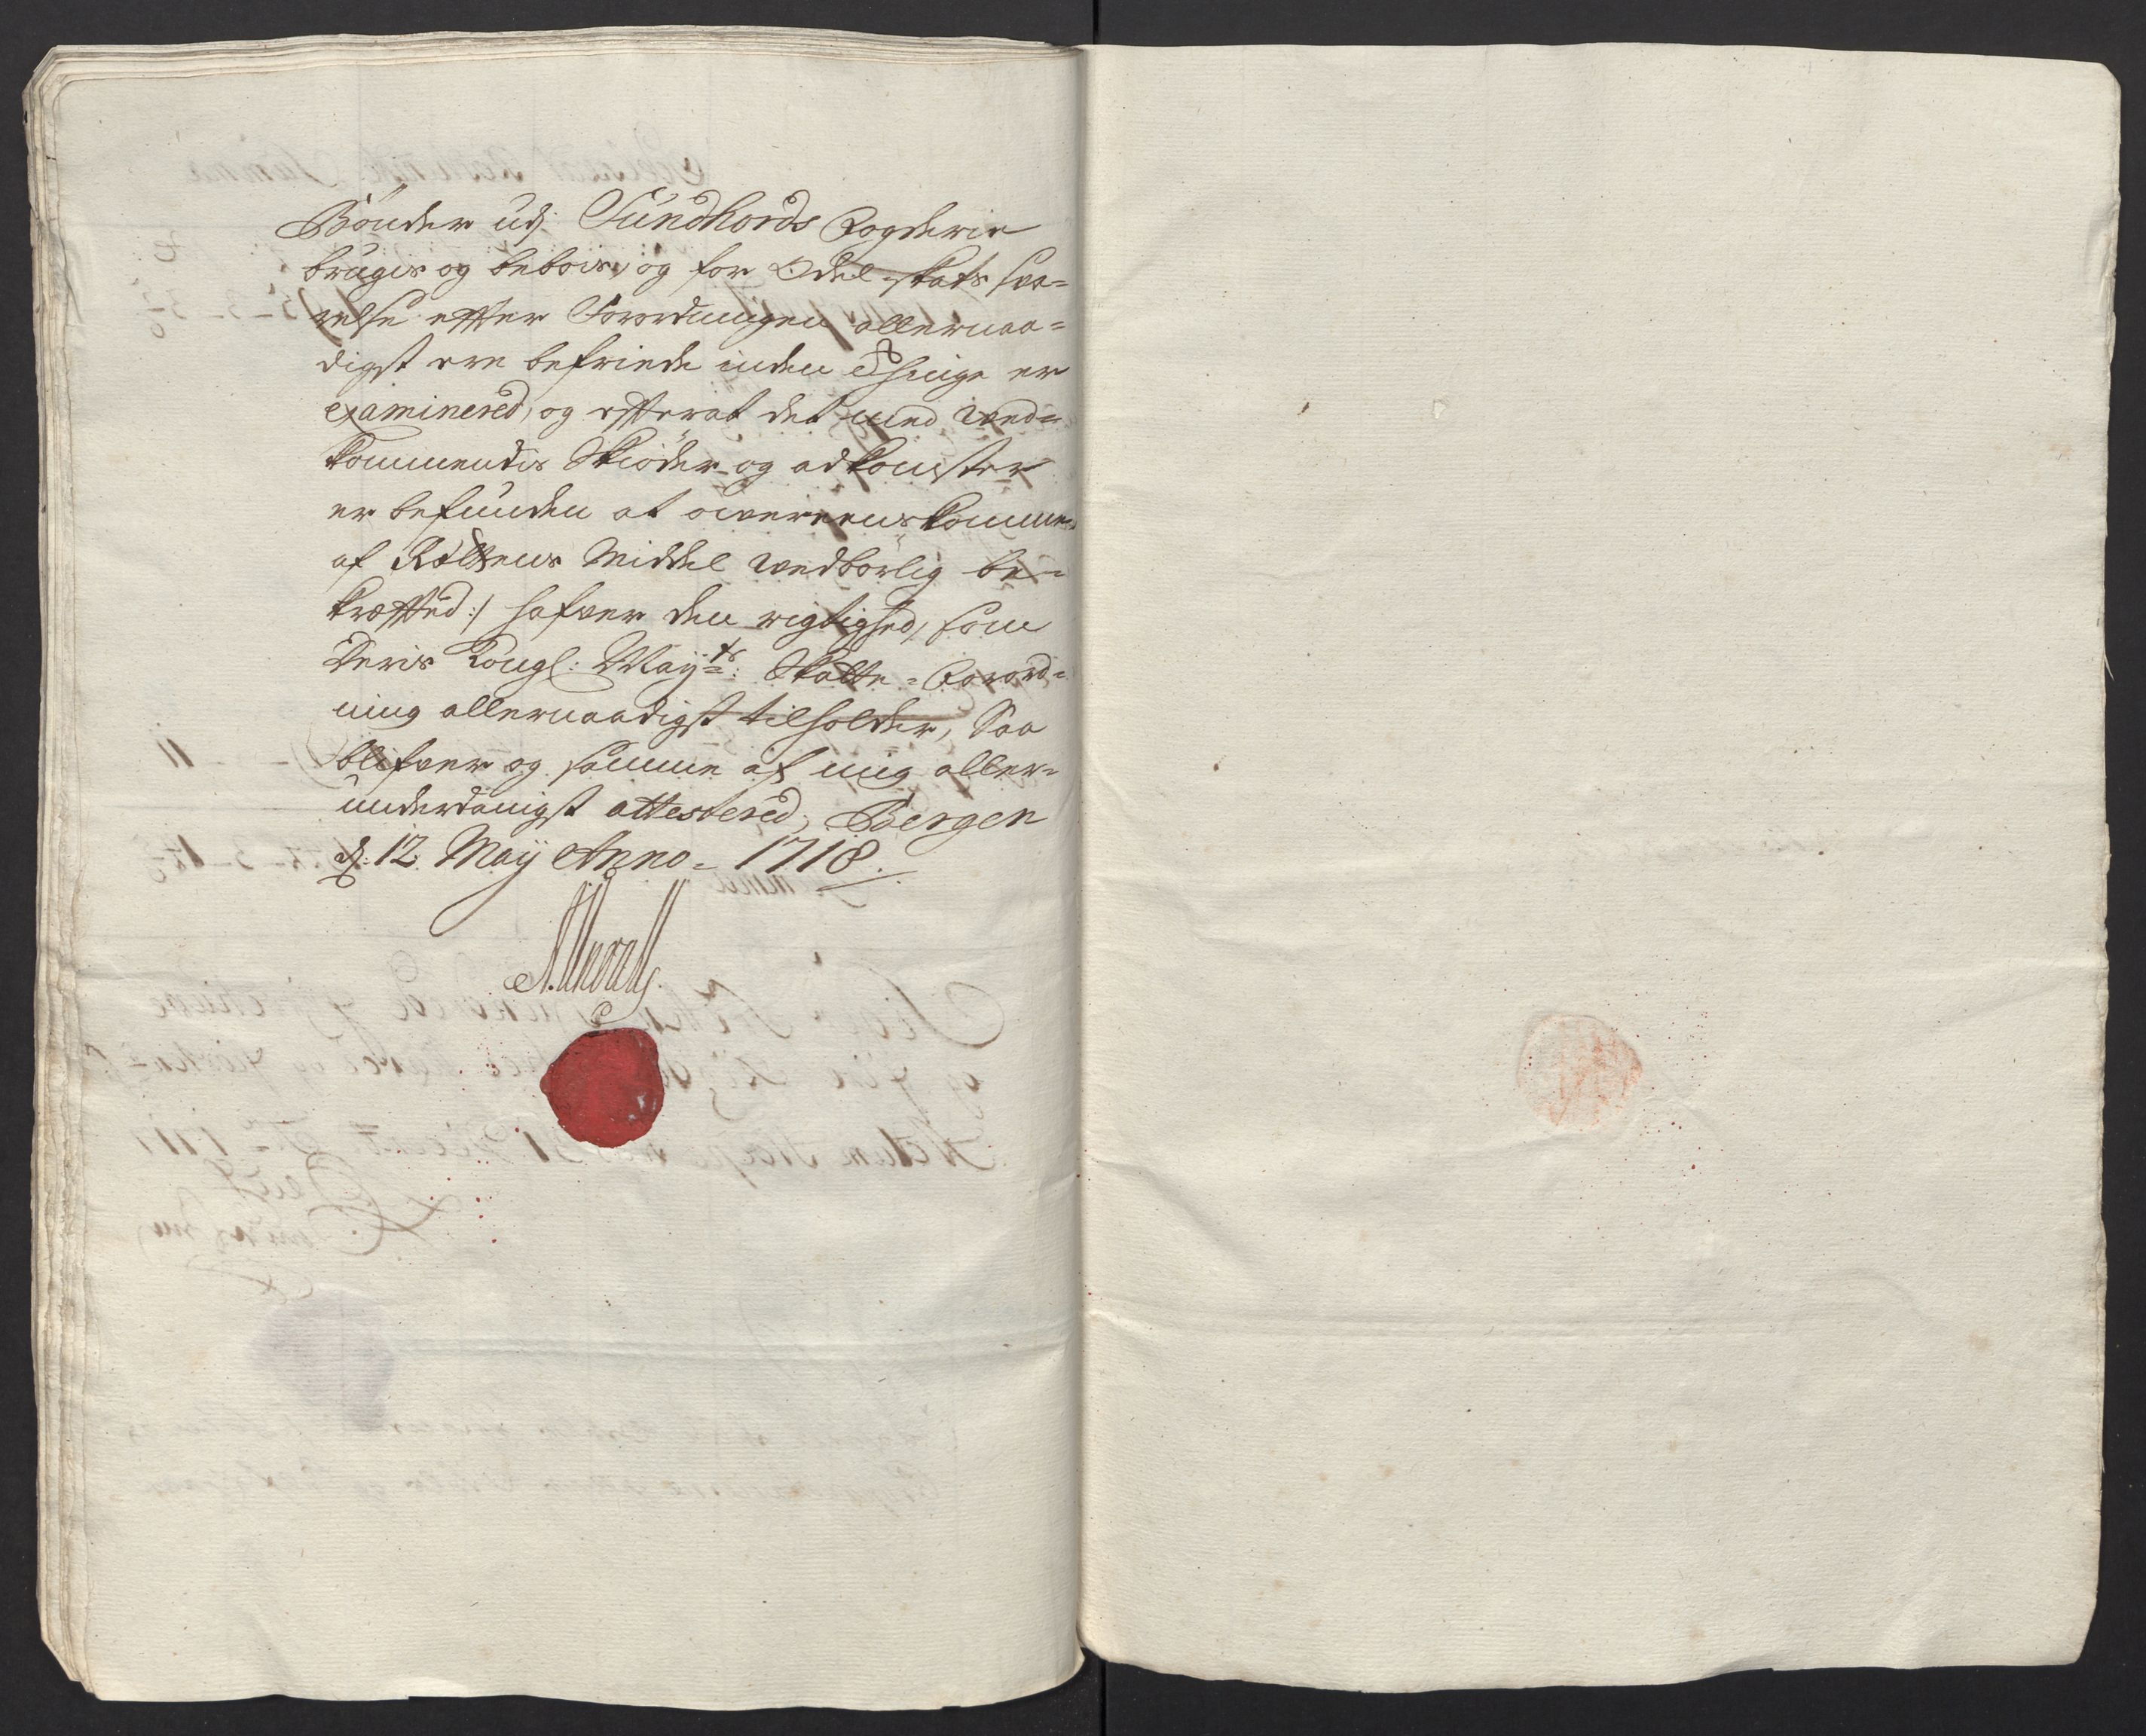 Bønder udj Sundhords Fogderie
brugis og bebois, og for Odel-skats sva=
relse effter Forordningen allernaa=
digst ere befriede inden Thinge er
examinered, og effterat det med ved=
kommendis Skiøder og adkomster
er befunden at overeenskomme
af Rettens Middel vedbørlig be=
kræfted :/ hafver den rigtighed, som
Deris Kongl: Mayts: Skatte=Forord=
ning allernaadigst tilholder, Saa
blifver og samme af mig aller=
underdanigst attestered, Bergen
dj: 12 Maij Anno 1718.